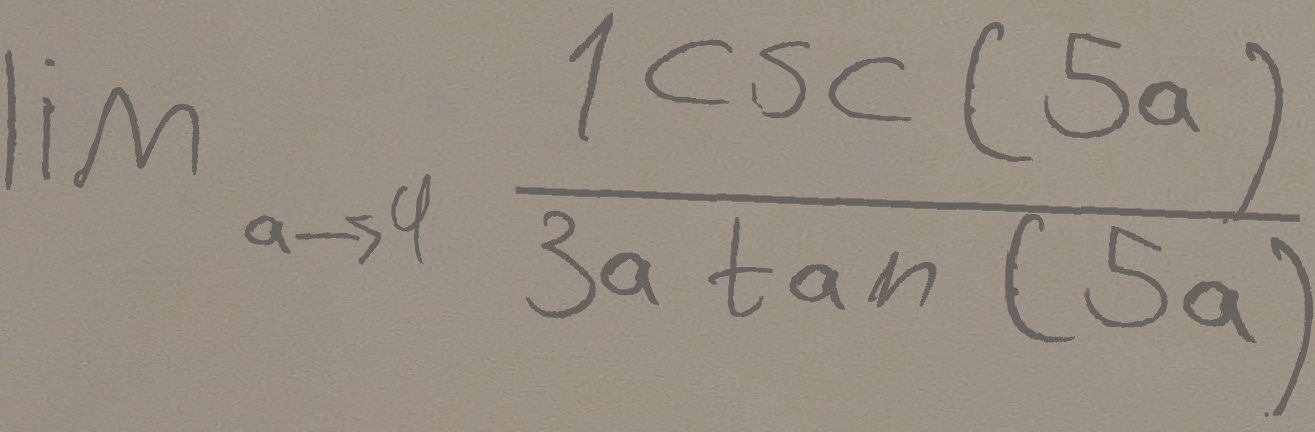 lim a→4 1 csc (5a)
3a tan (5a)